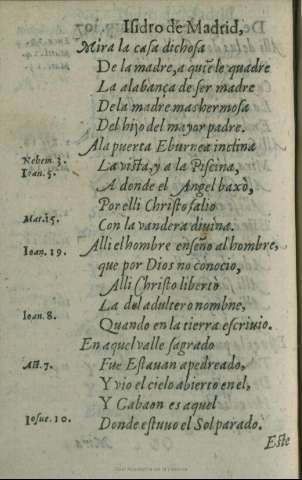 Isidro de Madrid,
Mira la casa dichosa
De la madre, a quiẽ le quadre
La alabança de ser madre
De la madre mas hermosa
Del hijo del mayor padre.
A la puerta Eburnea inclina
Nehem. 3.
La vista, y a la Piscina,
Ioan. 5.
A donde el Angel baxò,
Por elli Christo salio
Mat. 15.
Con la vandera diuina.
Alli el hombre enseño al hombre,
Ioan. 19.
que por Dios no conocio,
Alli Christo liberto
La del adultero nombre,
Ioan. 8.
Quando en la tierra escriuio.
En aquel valle sagrado
Act. 7.
Fue Estauan apedreado,
Y vio el cielo abierto en el,
Y Gabaon es aquel
Iosue. 10.
Donde estuuo el Sol parado.
Este